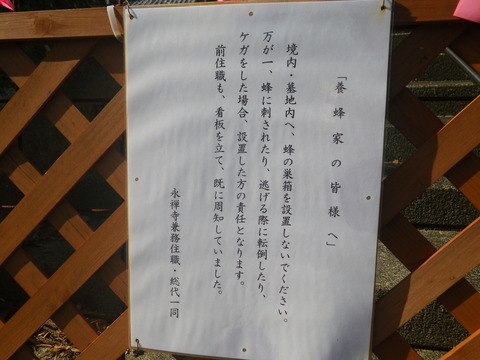 「養蜂家の皆様へ」
境内・墓地内へ、蜂の巣箱を設置しないでください。
万が一、蜂に刺されたり、逃げる際に転倒したり、
ケガをした場合、設置した方の責任となります。
前住職も、看板を立て、既に周知していました。
永禅寺兼務住職・総代一同